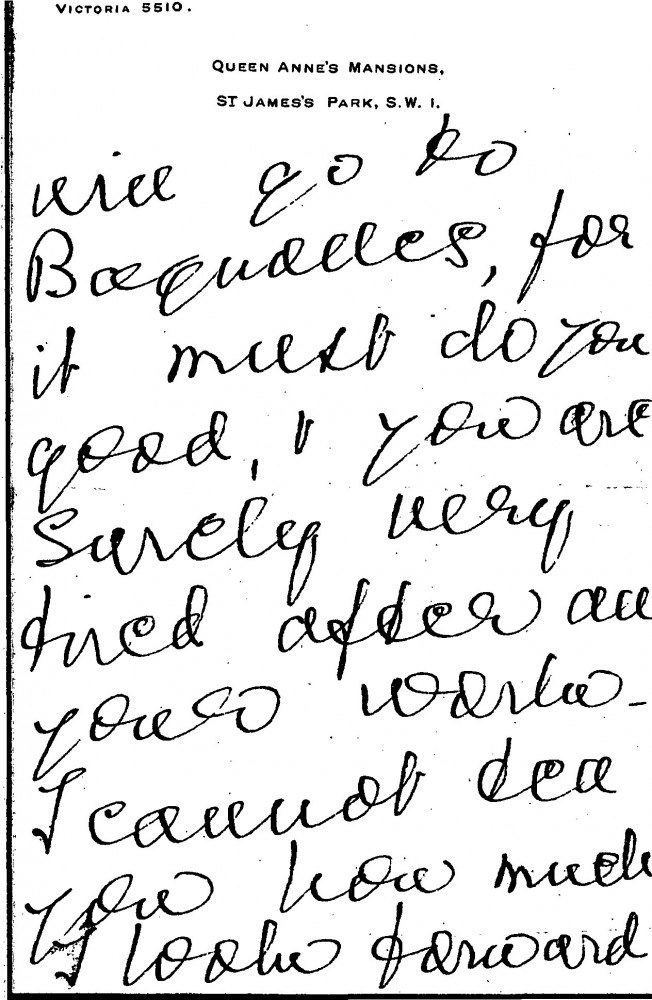 VICTORIA 5510.
QUEEN ANNE'S MANSIONS,
ST JAMES'S PARK, S.W. 1.
will go to
Bagnolles, for
it must do you
good, & you are
surely very
tired after all
your work_
I cannot tell
you how much
I look forward